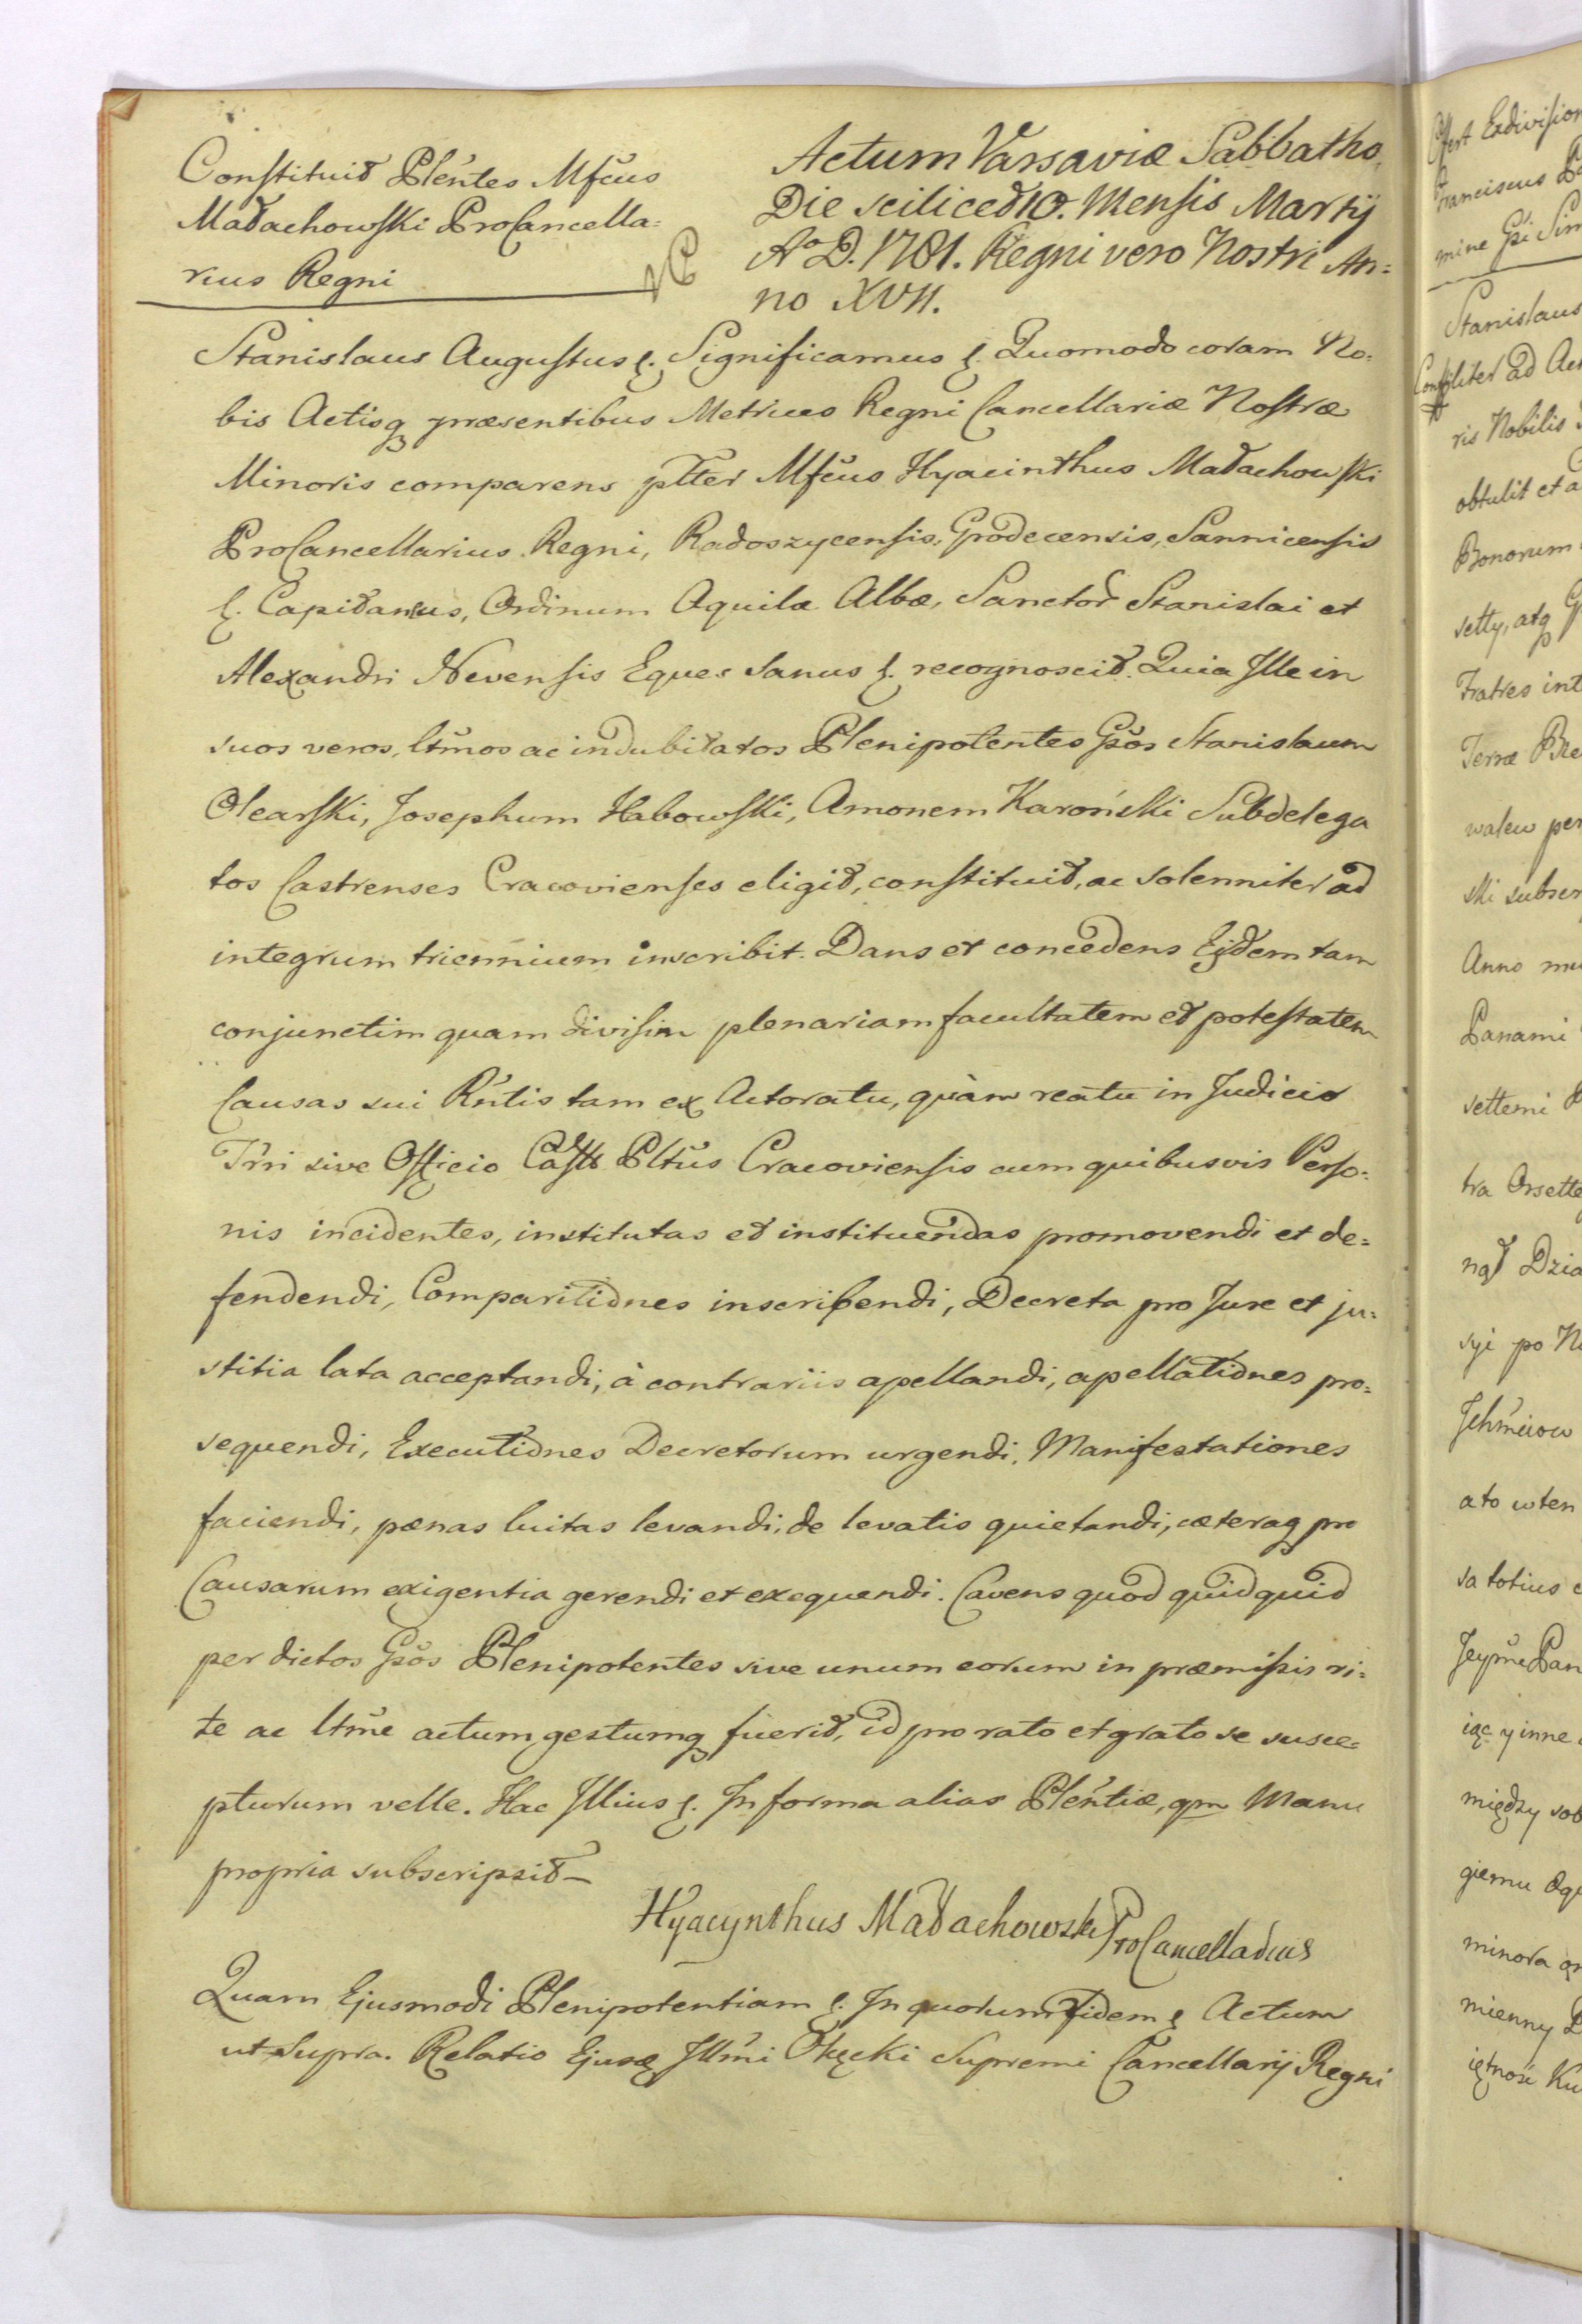 Constituit Plentes Mfcus
Małachowski ProCancella=
rius Regni
Actum Varsaviæ Sabbatho
Die scilicet 10. Mensis Martÿ
Aº D. 1781. Regni vero Nostri An=
no XVII.
Stanislaus Augustus &. Significamus &. Quomodo coram No=
bis Actisq præsentibus Metrices Regni Cancellariæ Nostræ
Minoris comparens pltter Mfcus Hyacinthus Małachowski
ProCancellarius Regni, Radoszycensis, Grodecensis, Sannicensis
&. Capitaneus, Ordinum Aquilæ Albæ, Sanctor Stanislai et
Alexandri Nevensis Eques sanus &. recognoscit. Quia Ille in
suos veros, ltmos ac indubitatos Plenipotentes Gsos Stanislaum
Olearski, Josephum Habowski, Amonem Karoński Subdelega
tos Castrenses Cracovienses eligit, constituit, ac solenniter ad
integrum triennium inscribit. Dans et concedens Eisdem tam
conjunctim quam divisim plenariam facultatem et potestatem
Causas sui Rntis tam ex Actoratu, quàm reatu in Judicio
Trri sive Officio Castr Pltus Cracoviensis cum quibusvis Perso=
nis incidentes, institutas et instituendas promovendi et de=
fendendi, Comparitiones inscribendi, Decreta pro Jure et ju=
stitia lata acceptandi, à contrariis apellandi, apellationes pro=
sequendi, Executiones Decretorum urgendi, Manifestationes
faciendi, pænas luitas levandi, de levatis quietandi, cæteraq pro
Causarum exigentia gerendi et exequendi. Cavens quod quidquid
per dictos Gsos Plenipotentes sive unum eorum in præmissis ri=
te ac ltme actum gestumq fuerit, id pro rato et grato se susce=
pturum velle. Hac Illius &. In forma alias Plentiæ, qm Manu
propria subscripsit—
Hyacynthus Małachowski ProCancellarius
Quam Ejusmodi Plenipotentiam &. In quorum Fidem & Actum
ut Supra. Relatio Ejusq Illmi Okęcki Supremi Cancellarÿ Regni